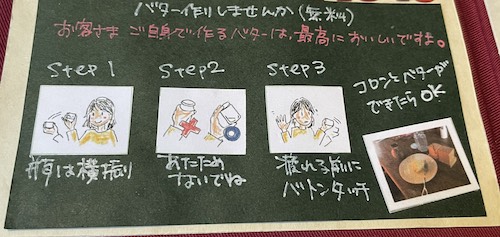 バター作りしませんか(無料)
お客さま ご自身で作るバターは、最高においしいですよ。
Step 1
瓶は横振り
Step2
あたため
ないでね
Step 3
疲れる前に
バトンタッチ
コロンとバターが
できたらOK